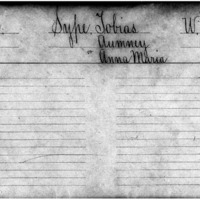 Sype, Tobias W.
" Aumney
" Anna Maria